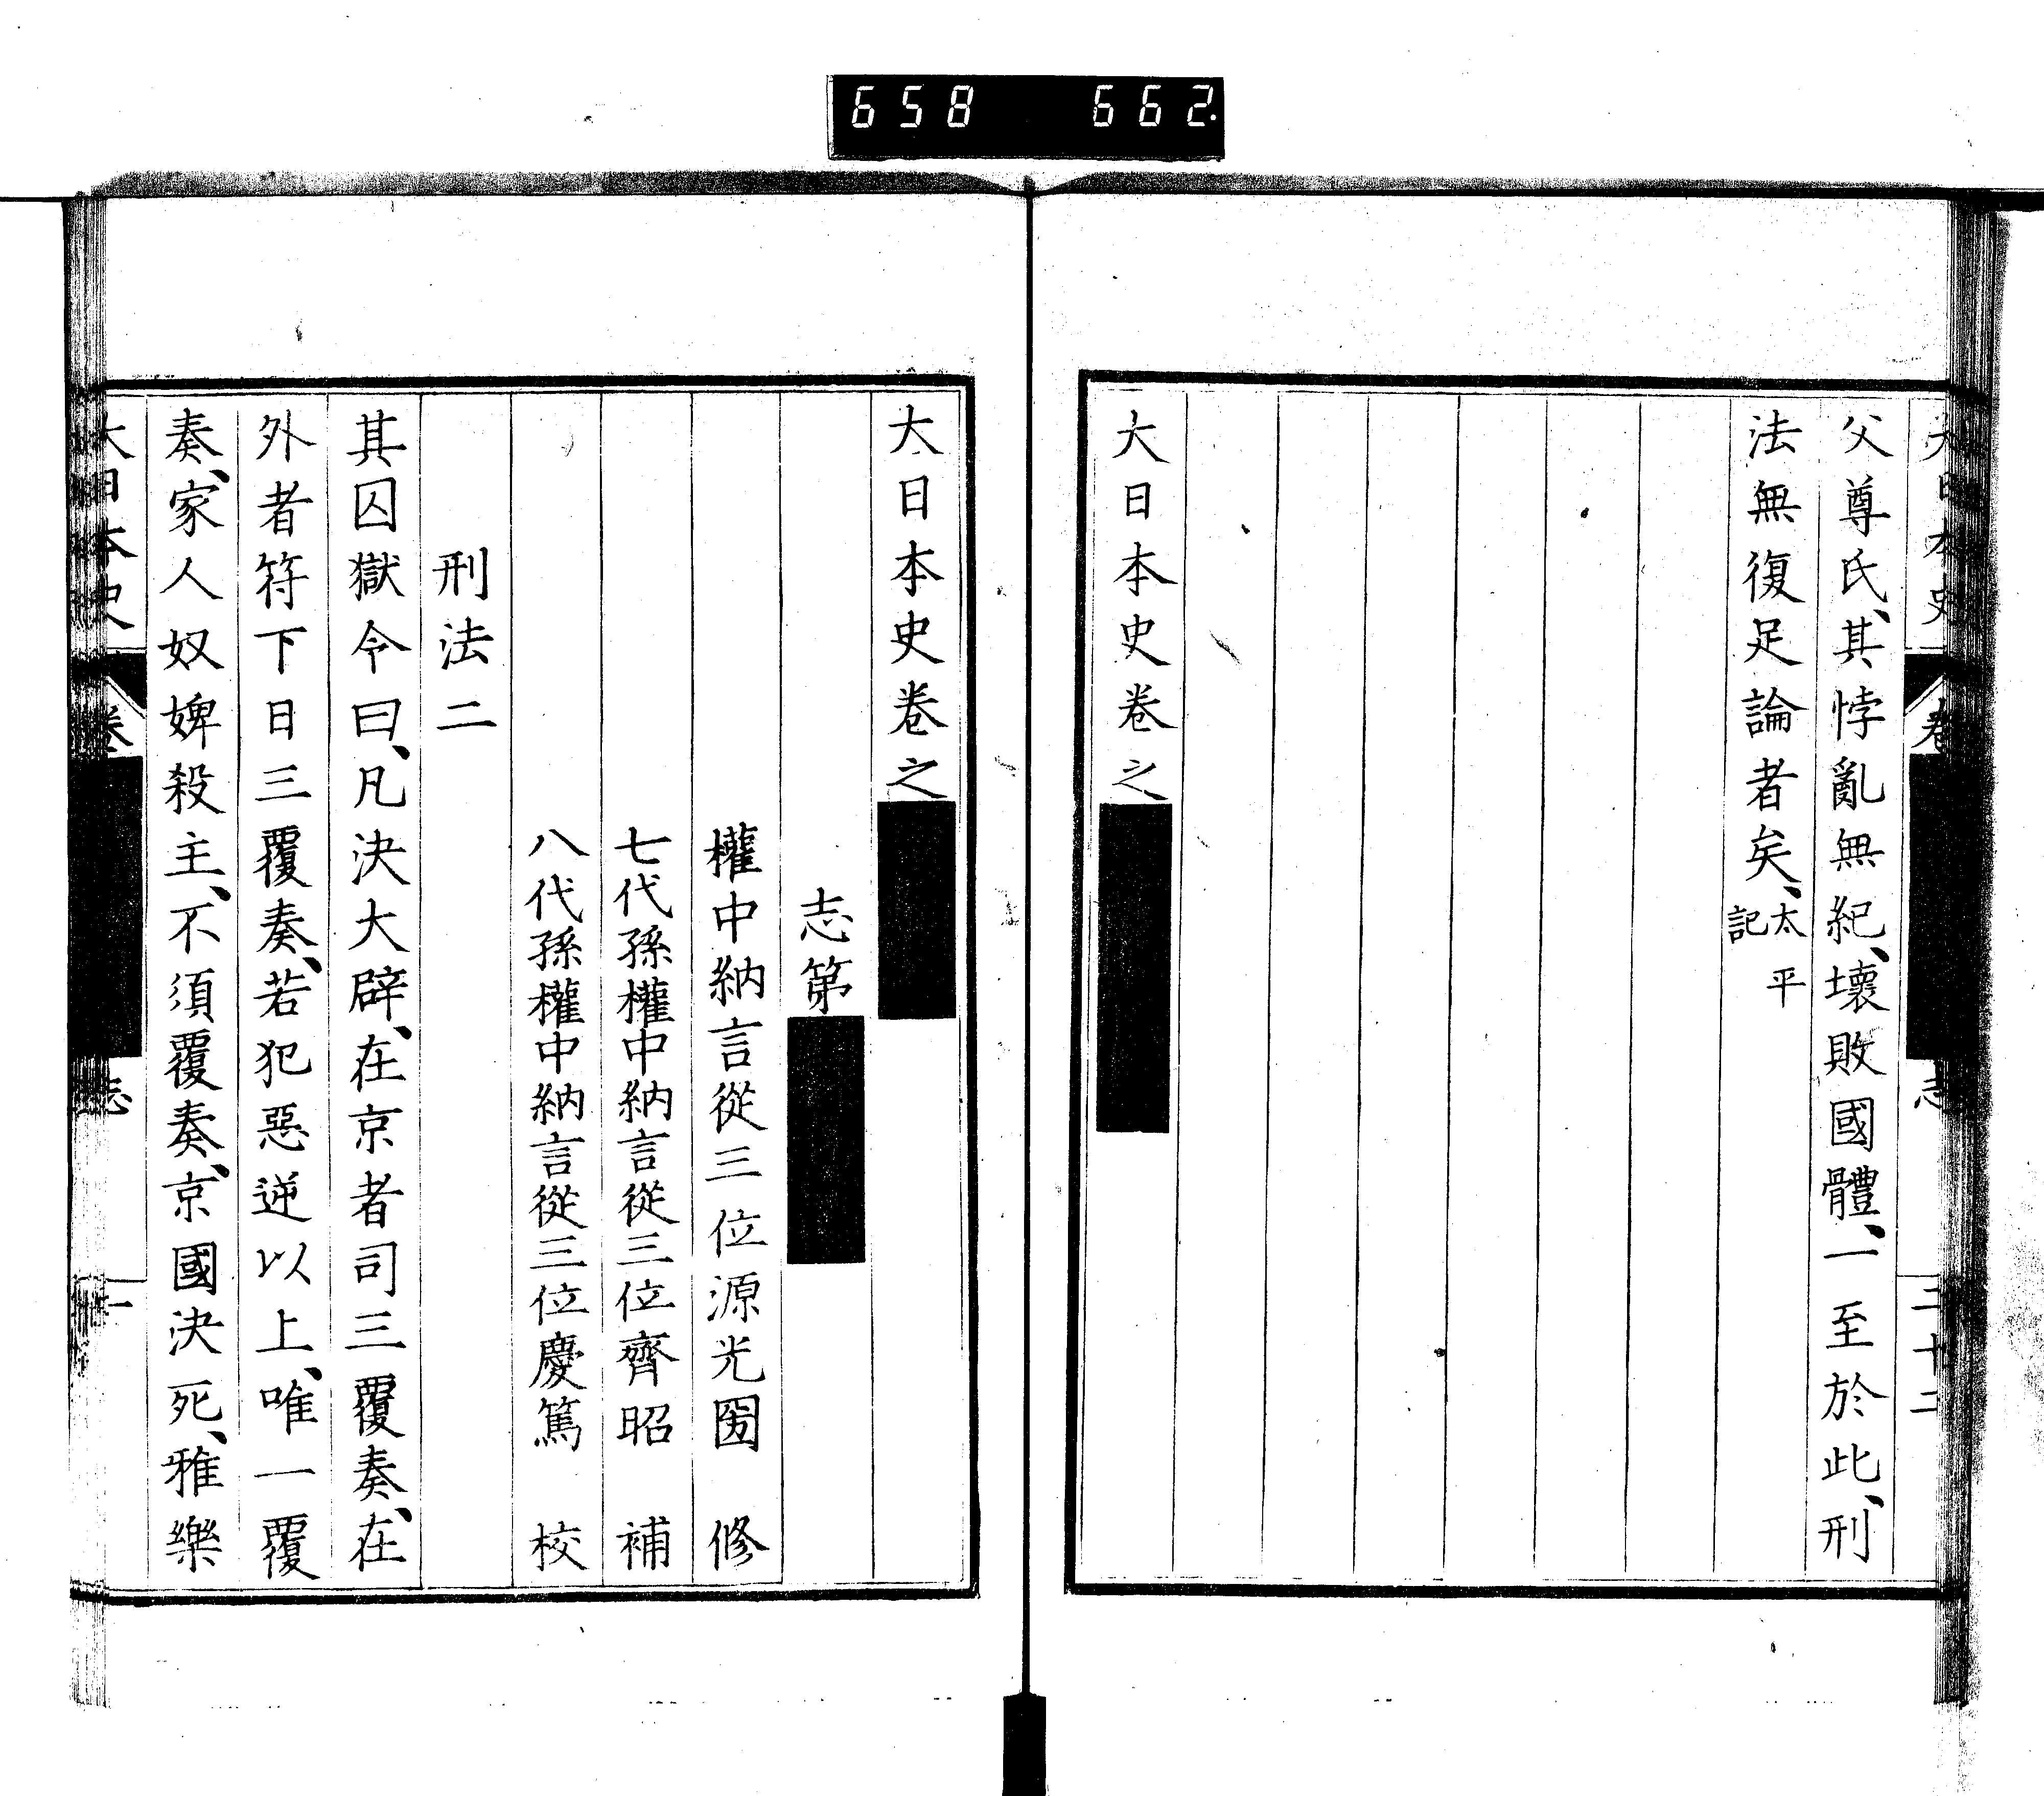 658 662
大日本史 卷 志 三十二
父尊氏、其悖亂無紀、壞敗國體、一至於此、刑
法無復足論者矣、太平記
大日本史卷之
大日本史卷之
志第
權中納言從三位源光圀 修
七代孫權中納言從三位齊昭 補
八代孫權中納言從三位慶篤 校
刑法二
其囚獄令曰、凡決大辟、在京者司三覆奏、在
外者符下日三覆奏、若犯惡逆以上、唯一覆
奏、家人奴婢殺主、不須覆奏、京國決死、雅樂
大日本史 卷 志 一